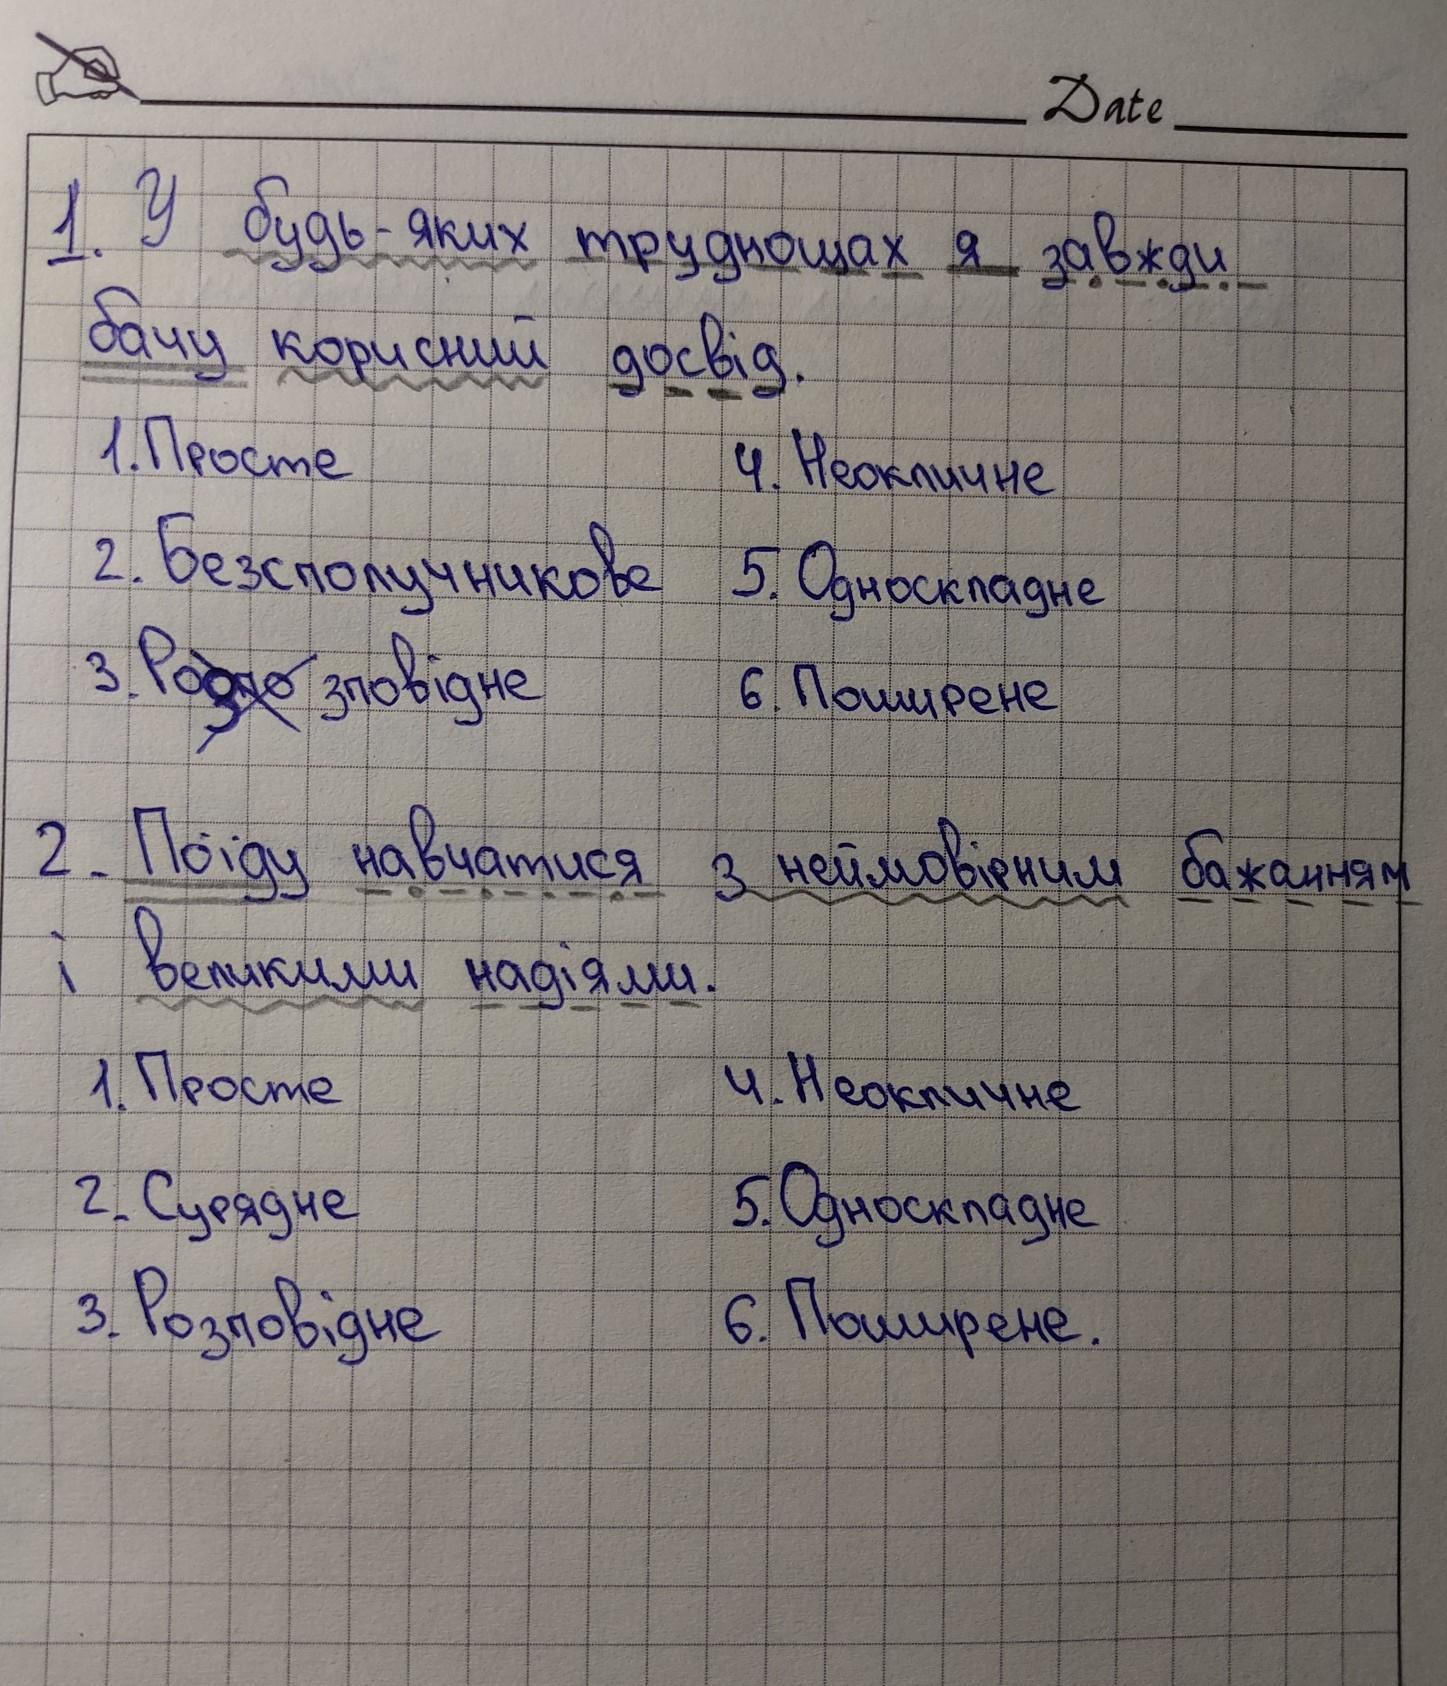 Date
1. У будь-яких труднощах я завжди
бачу корисний досвід.
1. Просте 4. Неокличне
2. Безсполучникове 5. Односкладне
3. Розповідне 6. Поширене
2. Поїду навчатися з неймовірним бажанням
і великими надіями.
1. Просте 4. Неокличне
2. Сурядне 5. Односкладне
3. Розповідне 6. Поширене.